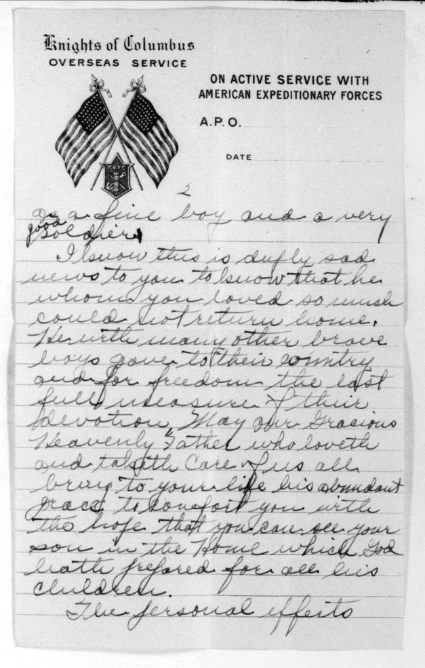 Knights of Columbus
OVERSEAS SERVICE
ON ACTIVE SERVICE WITH
AMERICAN EXPEDITIONARY FORCES
A.P.O.
DATE
2
as a fine boy and a very
good soldier.
I know this is deeply sad
news to you to know that he
whom you loved so much
could not return home.
He with many other brave
boys gave to their country
and for freedom the last
full measure of their
devotion. May our Gracious
Heavenly Father who loveth
and taketh care of us all
bring to your life his abundant
grace to comfort you with
the hope that you can see your
son in the Home which God
hath prepared for all his
children.
The personal effects